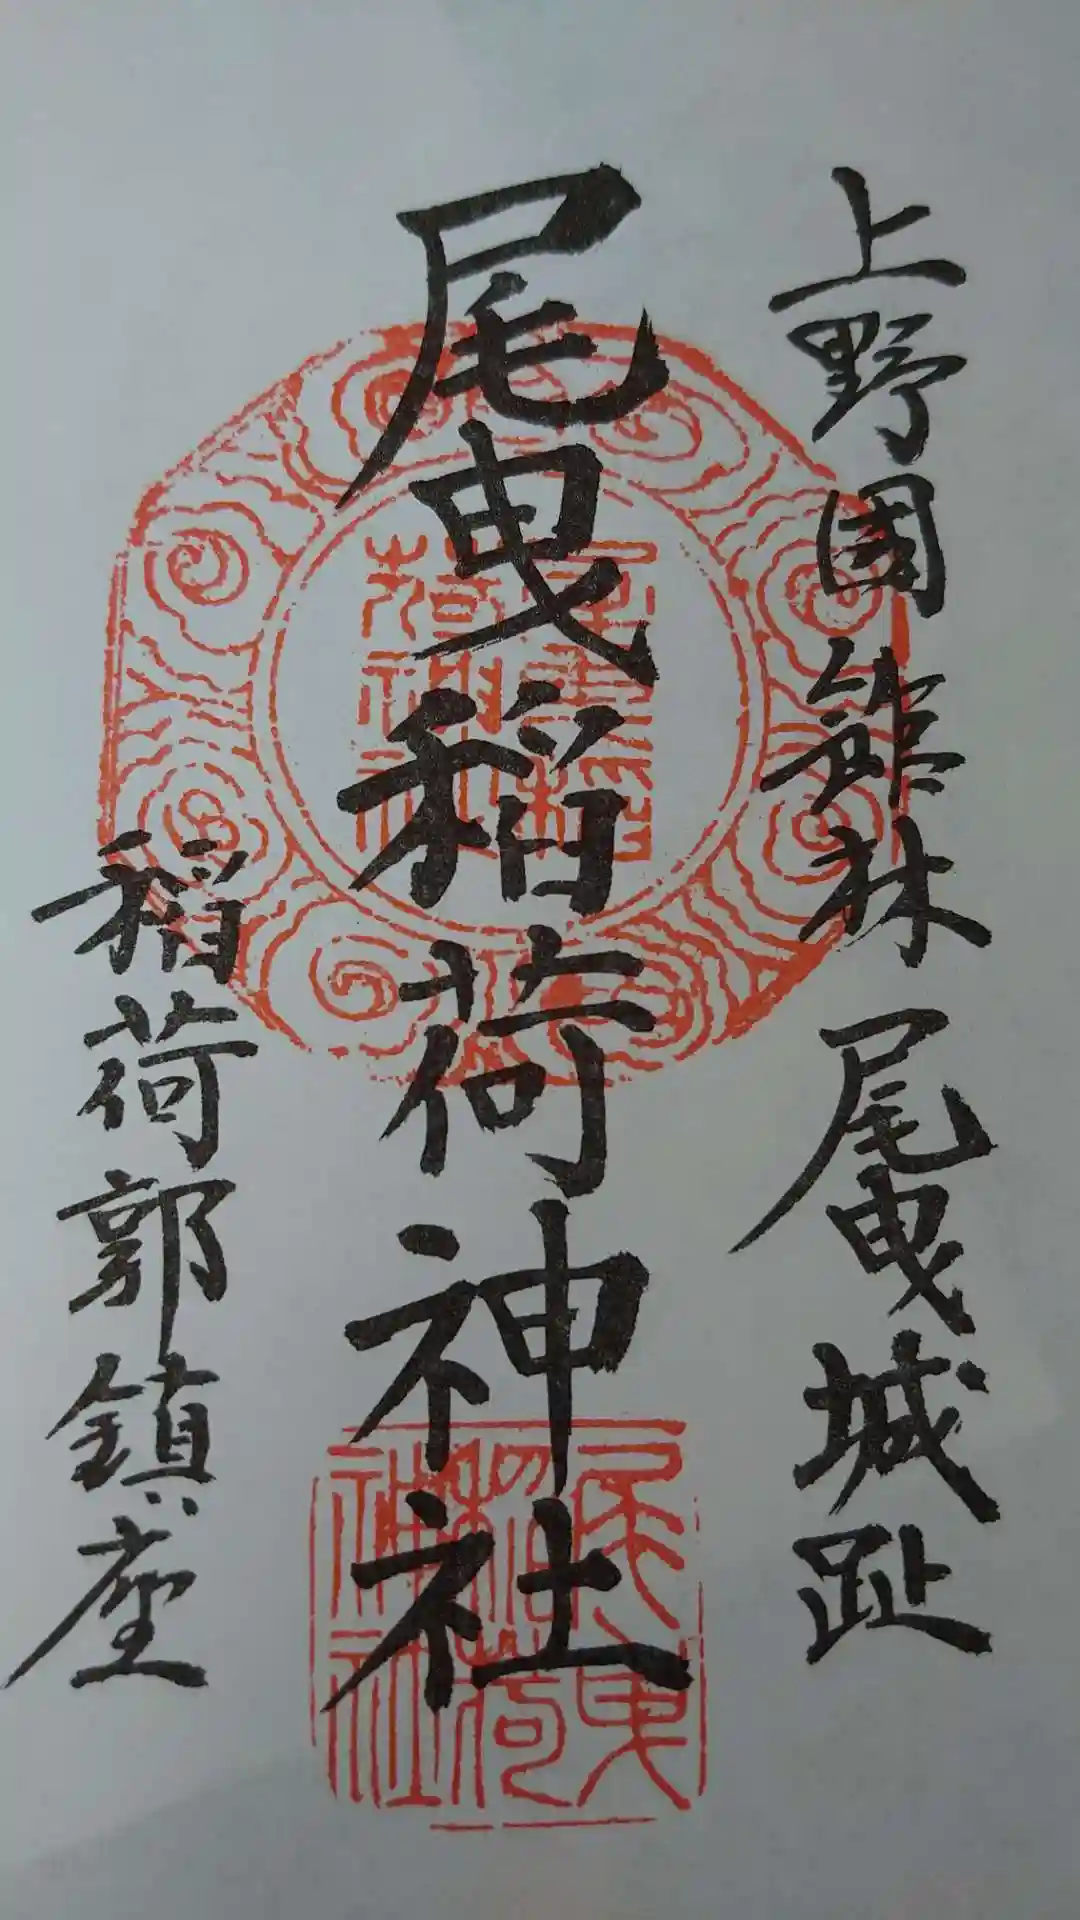 上野國館林尾曳城趾
尾曳稲荷神社
稲荷郭鎮座
尾曳稲荷神社
尾曳稲荷神社